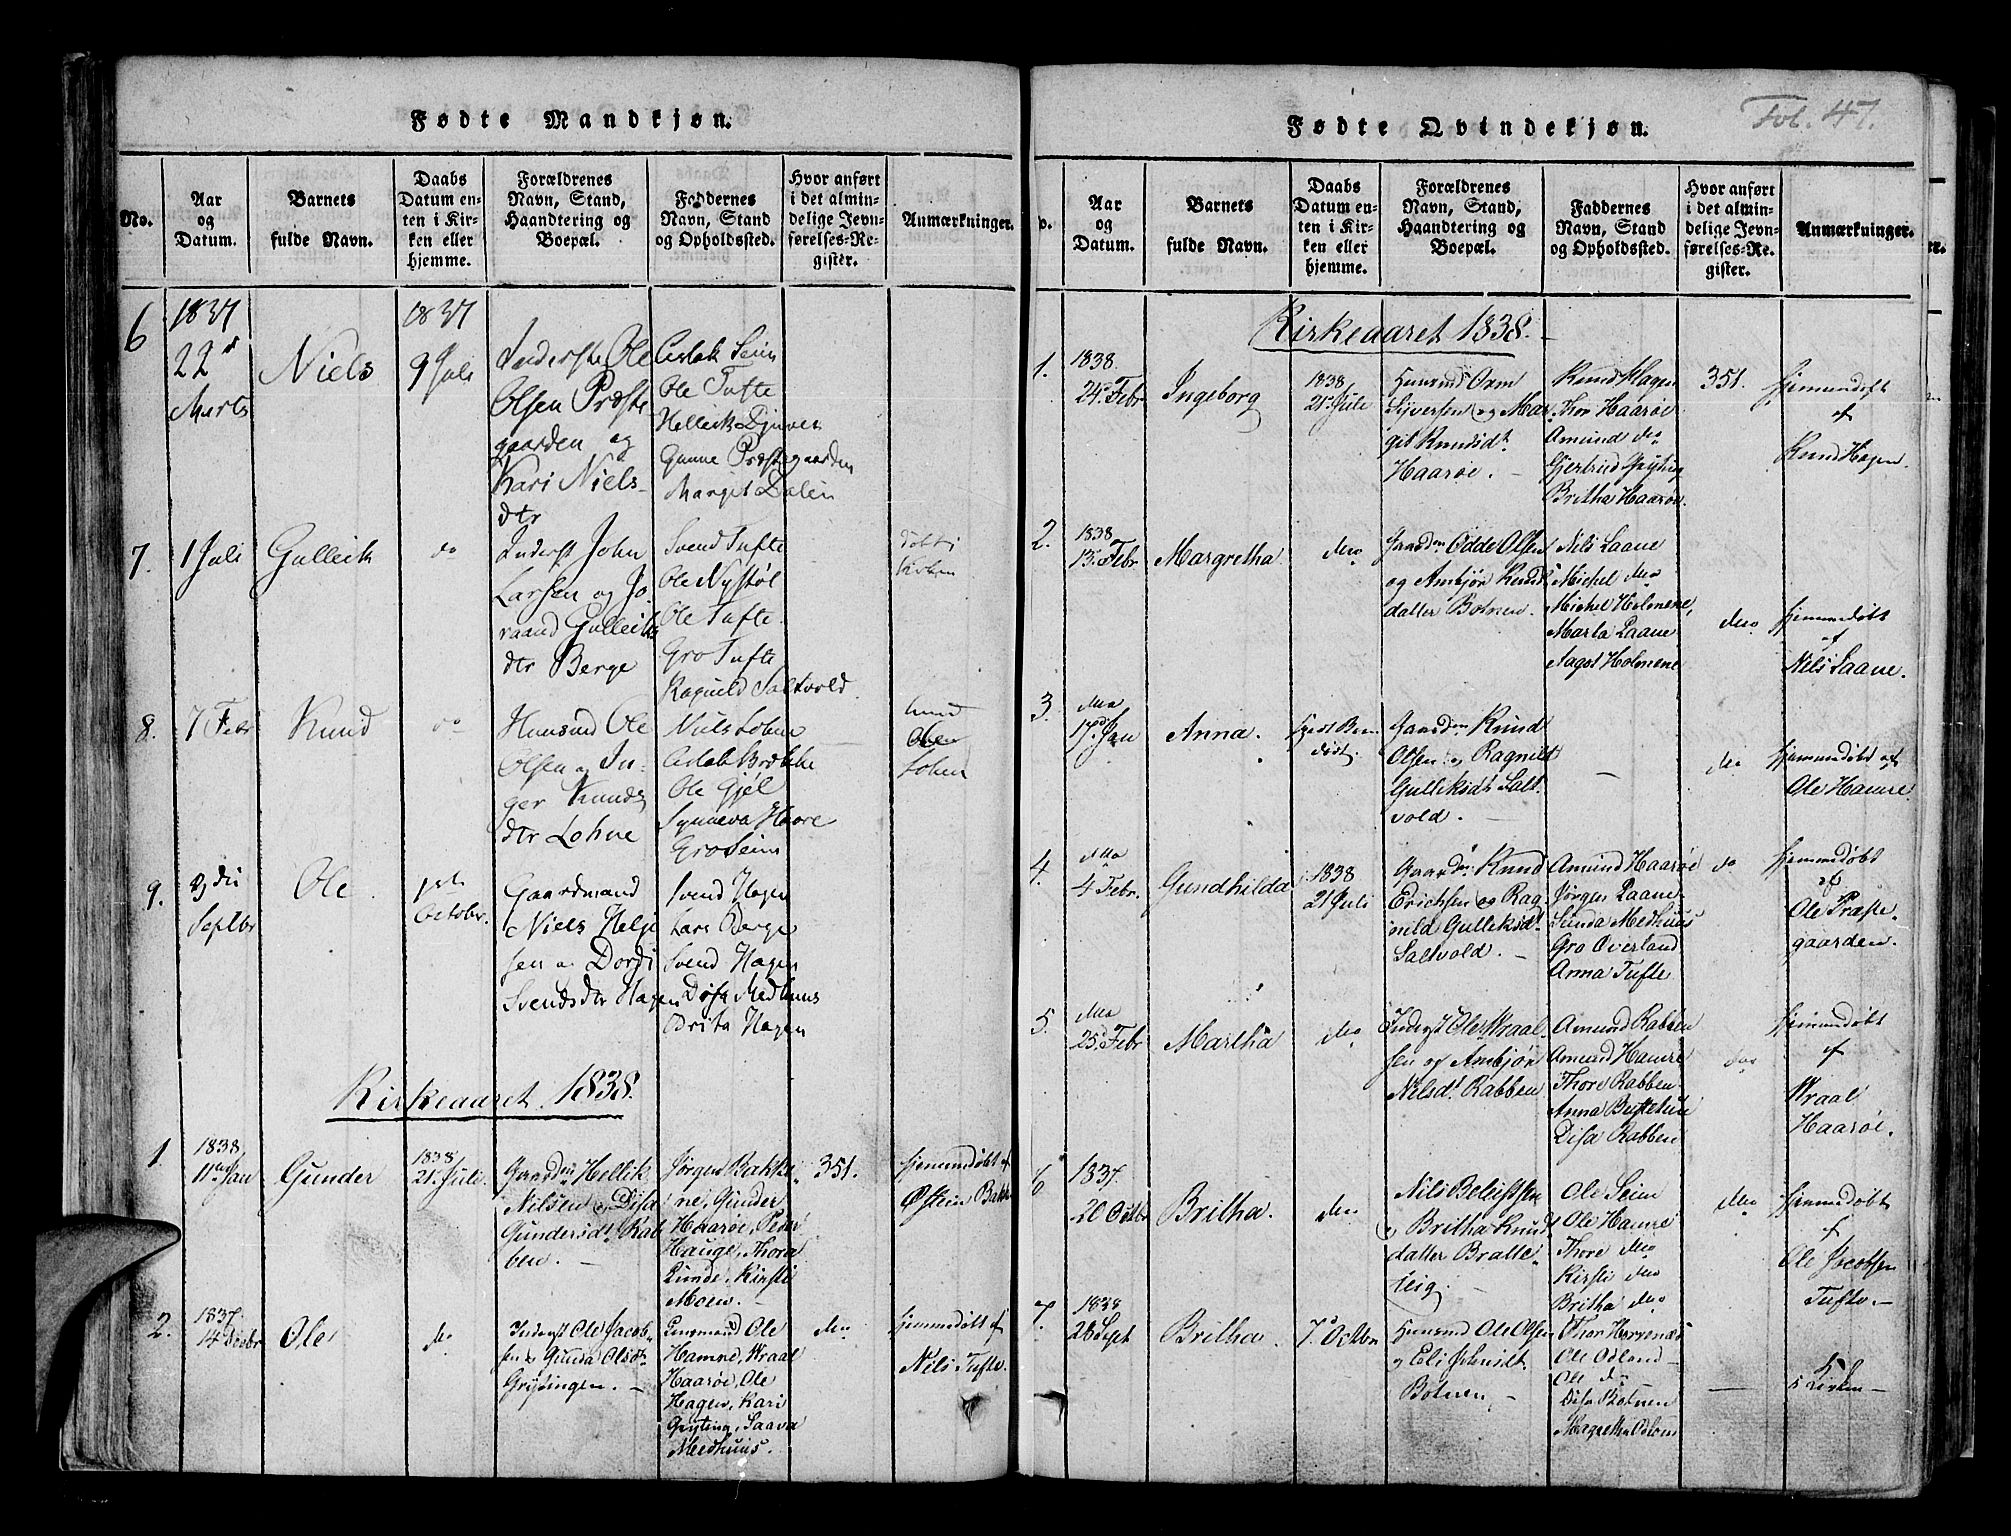 Fødte Mandkjøn.
No.
Aar
og
Datum.
Barnets
fulde Navn.
Daabs
Datum en-
ten i Kir-
ken eller
hjemme.
Forældrenes
Navn, Stand,
Haandtering og
Boepæl.
Faddernes
Navn, Stand
og Opholdssted.
Hvor anført
i det almin-
delige Jevn-
førelses-Re-
gister.
Anmærkninger.
6
1837
22d
Marts
Niels
1837
9 Juli
Inderste Ole
Olsen Præste
gaarden og
Kari Niels-
dtr
Aslak Seim
Ole Tufte
Helleik Djuven
Gunne Præstegaarden
Marget Dalen
7.
1 Juli
Gulleik
do
Inderst John
Larsen og Jo-
raand Gulleiks
dtr Berge
Svend Tufte
Ole Nystøl
Ole Tufte
Gro Tufte
Ragnild Saltvold
døbt i
Kirken
8.
7 Febr
Knud
do
Huusmd Ole
Olsen og In-
ger Knuds
dtr Lohne
Niels Lohne
Aslak Brække
Ole Gjøl
Synneva Haare
Gro Seim
Lohen
9.
3die
Septbr
Ole
1ste
October.
Gaardmand
Niels Helje
sen og Dordi
Svendsdtr Hagen
Svend Hagen
Lars Berge
Svend Hagen
Døsa Medhuus
Brita Hagen
Kirkeaaret 1838.
1.
1838
11te Jan
Gunder
1838
21. Juli.
Gaardmn Hellik
Nilsen og Disa
Gundersdt Rab
ben. -
Jørgen Bakke
ne, Gunder
Haarøe, Peder
Hauge, Thora
Lunde, Kirsti
Moen. -
351.
hjemmedøbt af
Østein Bakk
2.
1837.
14 Decbr
Ole
do
Inderst Ole Jacob-
sen og Gunda Olsdt
Grytingen. -
Ungmand Ole
Hamre, Wraal
Haarøe, Ole
Hagen, Kari
Gryting, Saava
Medhuus.
do
hjemmedøbt af
Nils Tufte.
Fødte Qvindekjøn.
Fol. 47.
o.
Aar
og
Datum.
Barnets
fulde Navn.
Daabs
Datum en-
ten i Kir-
ken eller
hjemme.
Forældrenes
Navn, Stand,
Haandtering og
Boepæl.
Faddernes
Navn, Stand
og Opholdssted.
Hvor anført
i det almin-
delige Jevn-
førelses-Re-
gister.
Anmærkninger.
Kirkeaaret 1838. -
1.
1838.
24. Febr
Ingeborg
1838
21. Juli
Huusmd Orm
Syversen og Mar-
git Knudsdt.
Haarøe. -
Knud Hagen
Thor Haarøe
Amund do
Gjertrud Gryting
Britha Haarøe.
351.
hjemmedøbt
af
Knud Hagen.
2.
1838
13. Febr
Margretha
do
Gaardmn Odde Olsen
og Ambjør Knuds
datter Botnen.
Nils Laane
Michel do
Michel Holmene,
Marta Laane
Aagot Holmene
do
hjemmedøbt
af
Nils Laane.
3.
do
17. Jan
Anna.
Gaardmn Knud
Olsen og Ragnild
Gulleksdt Salt-
vold. -
-
do
hjemmedøbt af
Ole Hamre.
4.
do
4 Febr.
Gundhilda
1838
21 Juli
Gaardmn Knud
Erichsen og Rag-
nild Gulleksdt
Saltvold. -
Amund Haarøe
Jørgen Laane
Gunda Medhuus
Gro Overland
Anna Tufte
do
hjemmedøbt
af
Ole Præste-
gaarden.
5.
do
25. Febr
Martha
do
Inderst Ole Wraal
sen og Ambjør
Nilsdt. Rabben
Amund Rabben
Amund Hamre
Thore Rabben
Anna Buttetun
Disa Rabben
do
hjemmedøbt
af
Wraal
Haarøe.
6
1837.
20 Octbr
Britha.
do
Nils Beleifsen
og Britha Knuds
datter Bratte-
teig.
Ole Seim
Ole Hamre
Thore do
Kirsti do
Britha do
do
hjemmedøbt
af
Ole Jacobsen
Tufte. -
7.
1838
26 Sept
Britha.
7. Octbr
Huusmd Ole Olsen
og Eli Johnsdt.
Botnen -
Thor Horvenæs
Ole Odland
Ole do
Disa Botnen
Magretha Odland
-
i Kirken -